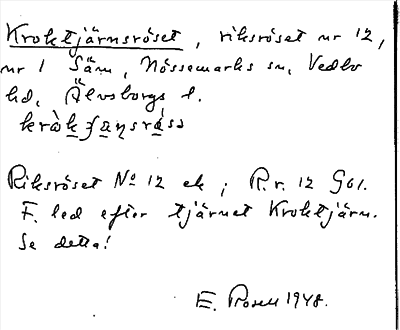 Kroktjärnsröset, riksröset nr 12,
nr 1 Säm, Nössemarks sn, Vedbo
hd, Älvsborgs l.
Riksröset No 12 ek; R.r. 12 Gbl.
F. led efter tjärnet Kroktjärn.
Se detta!
E. Rosell 1948.